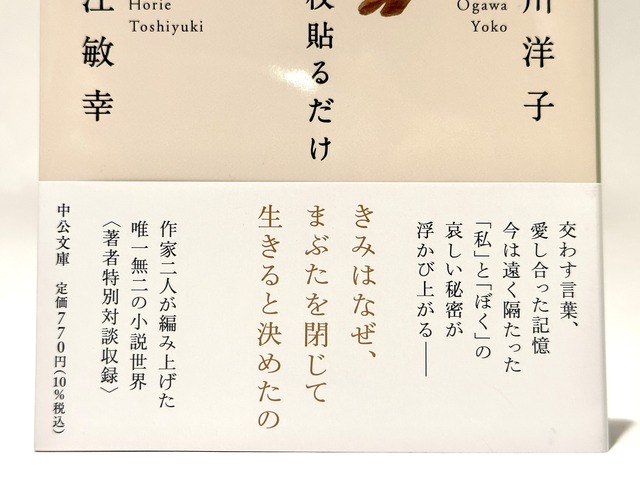 川洋子
Ogawa
Yoko
枚貼るだけ
Horie
Toshiyuki
江敏幸
交わす言葉、
愛し合った記憶
今は遠く隔たった
「私」と「ぼく」の
哀しい秘密が
浮かび上がる――
きみはなぜ、
まぶたを閉じて
生きると決めたの
作家二人が編み上げた
唯一無二の小説世界
〈著者特別対談収録〉
中公文庫 定価770円(10%税込)